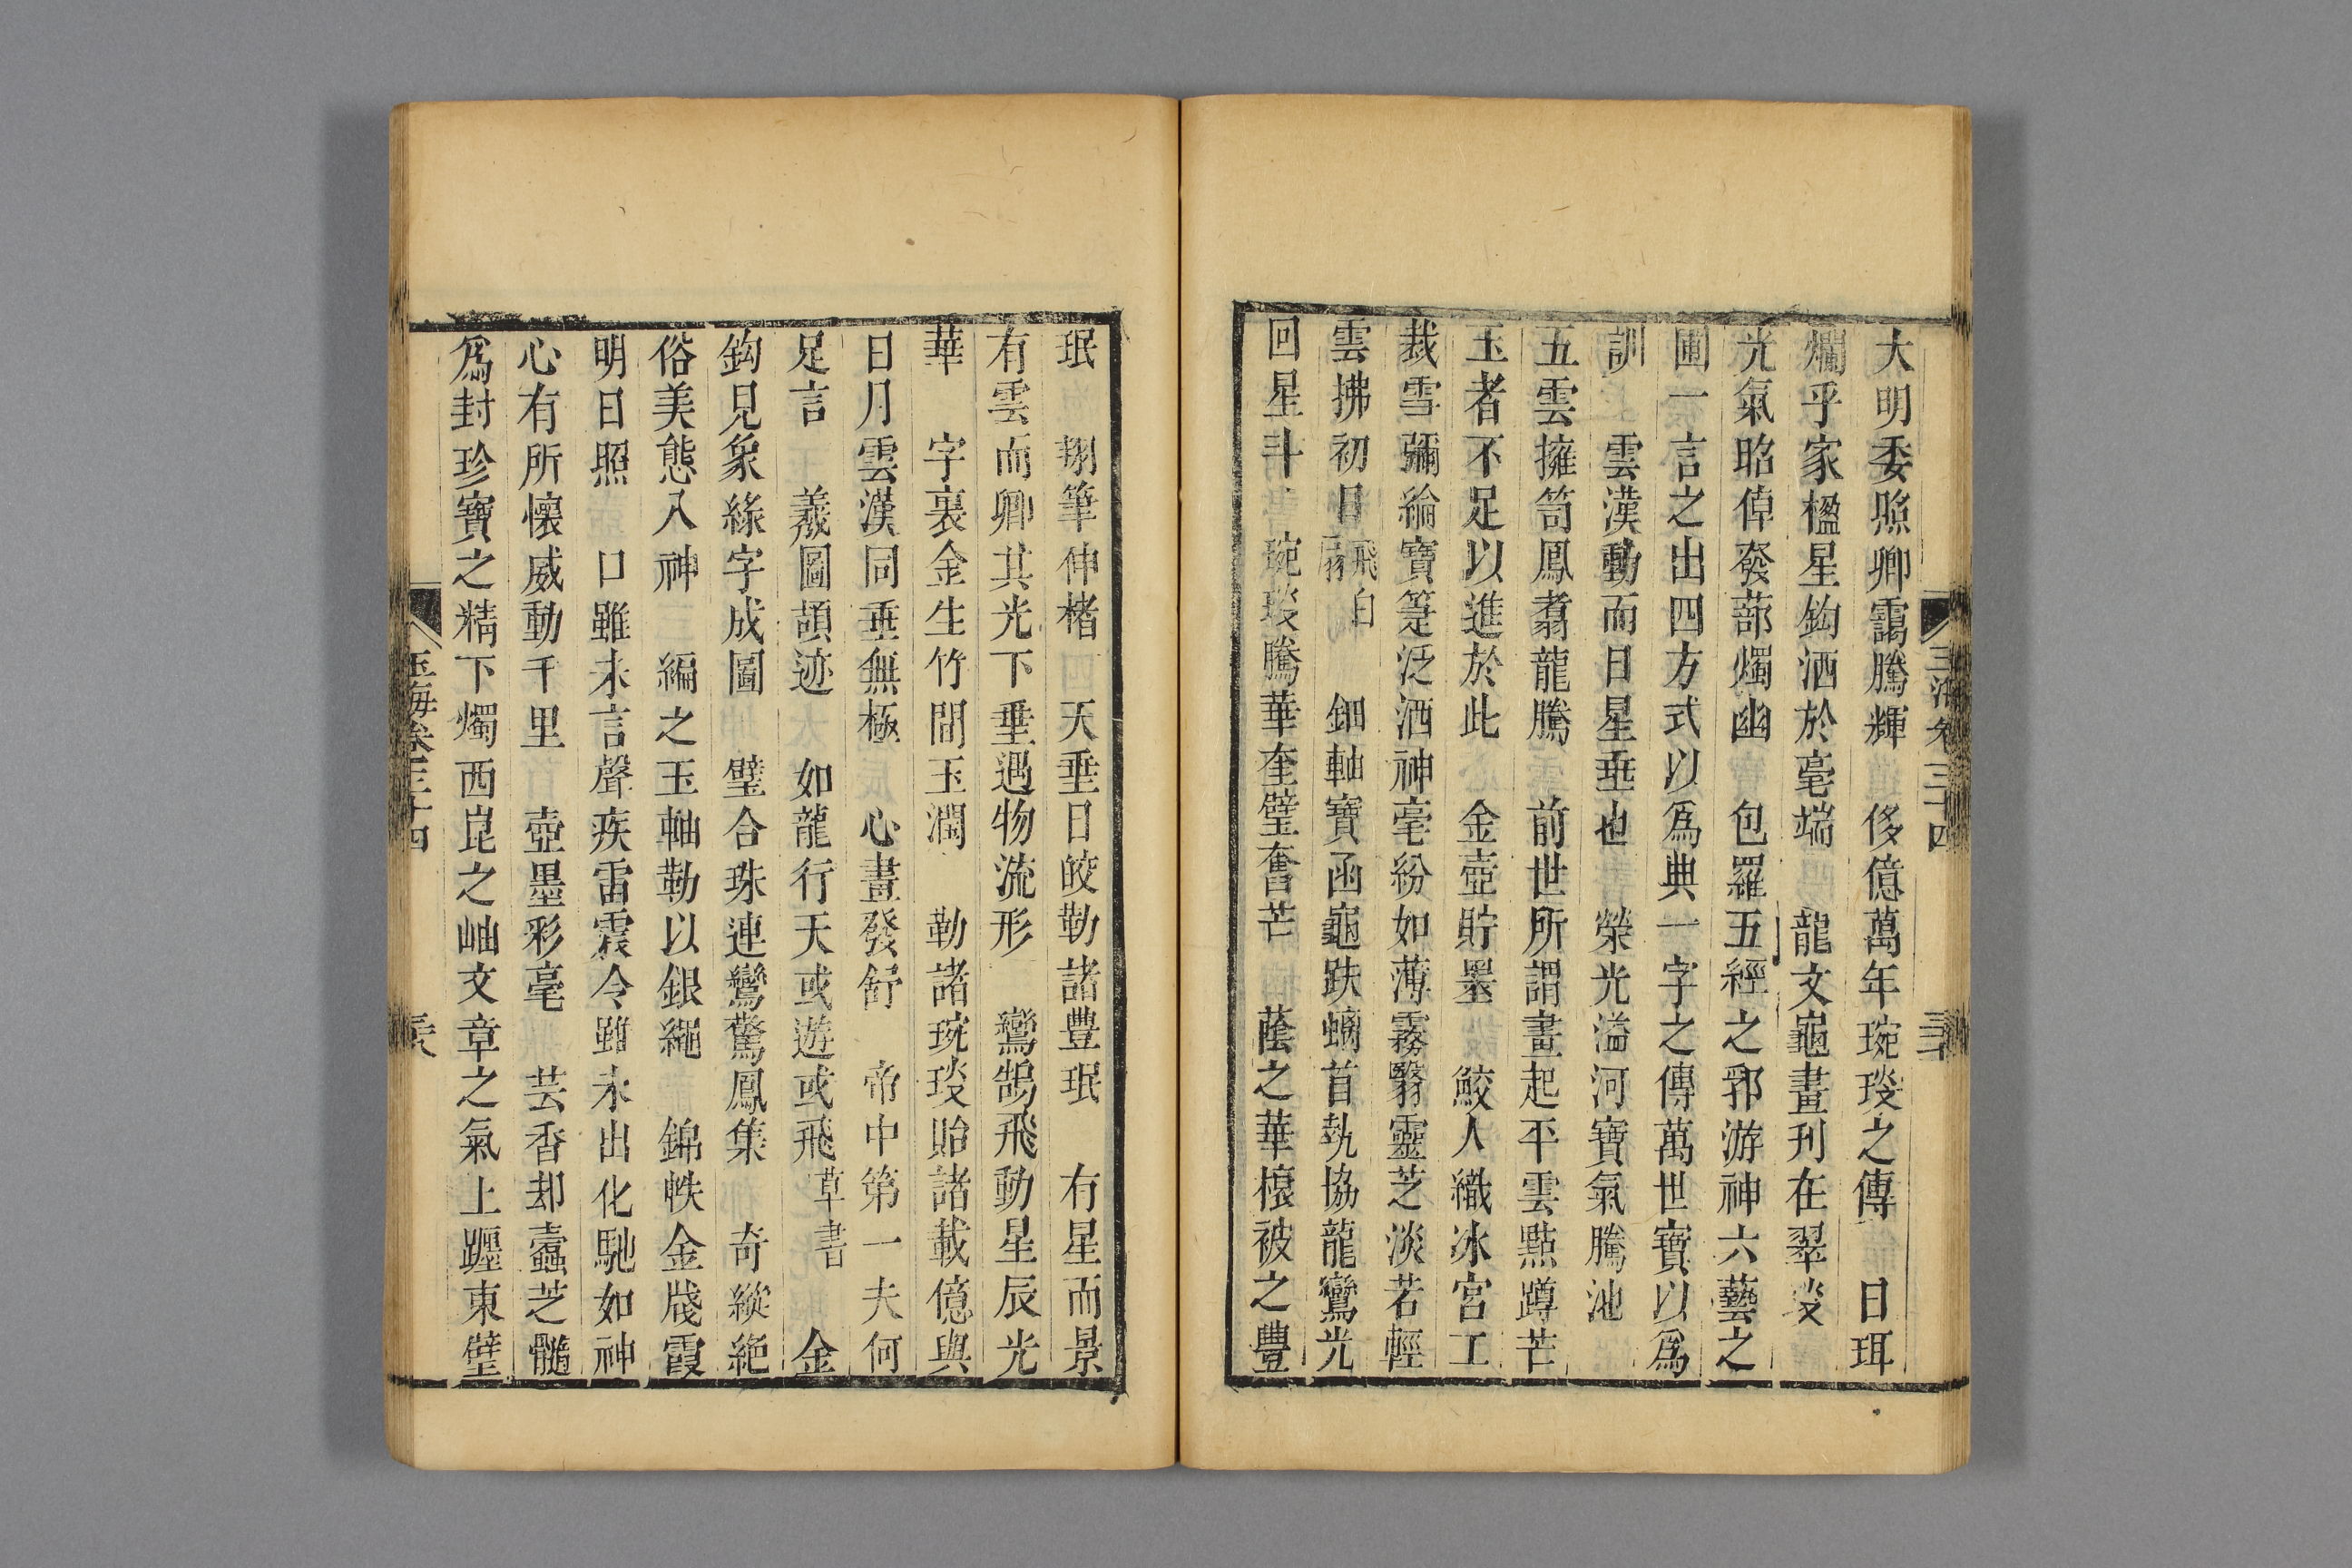 大明委照卿靄騰輝　侈億萬年琬琰之傳　日珥
爛乎家楹星鈎洒於毫端　龍文龜畫刋在翠琰
光氣昭倬發蔀燭幽　包羅五經之郛游神六藝之
圃一言之出四方式以爲典一字之傳萬世寶以爲
訓　雲漢動而日星垂也　榮光溢河寶氣騰池
五雲擁笥鳳翥龍騰　前世所謂畫起平雲點蹲芒
玉者不足以進於此　金壺貯墨　鮫人織冰宮工
裁雪彌綸寶笔泛洒神毫紛如薄霧翳靈芝淡若輕
雲拂初日飛白扇　鈿軸寶函龜趺螭首埶協龍鸞光
回星斗　琬琰騰華奎璧奮芒　蔭之華榱被之豐
玉海卷三十四
珉　搦筆伸楮　天垂日皎勒諸豐珉　有星而景
有雲而卿其光下垂遇物流形　鸞鵠飛動星辰光
華　字裏金生竹間玉潤　勒諸琬琰貽諸載億與
日月雲漢同垂無極　心畫發舒　帝中第一夫何
足言　羲圖頡迹　如龍行天或遊或飛草書　金
鈎見象綠字成圖　璧合珠連鸞驚鳳集　奇縱絶
俗美態入神　編之玉軸勒以銀繩　錦帙金牋霞
明日照　口雖未言聲疾雷霆令雖未出化馳如神
心有所懷威動千里　壺墨彩毫　芸香却蠧芝髓
爲封珍寶之精下燭西崑之岫文章之氣上躔東壁
玉海卷三十四